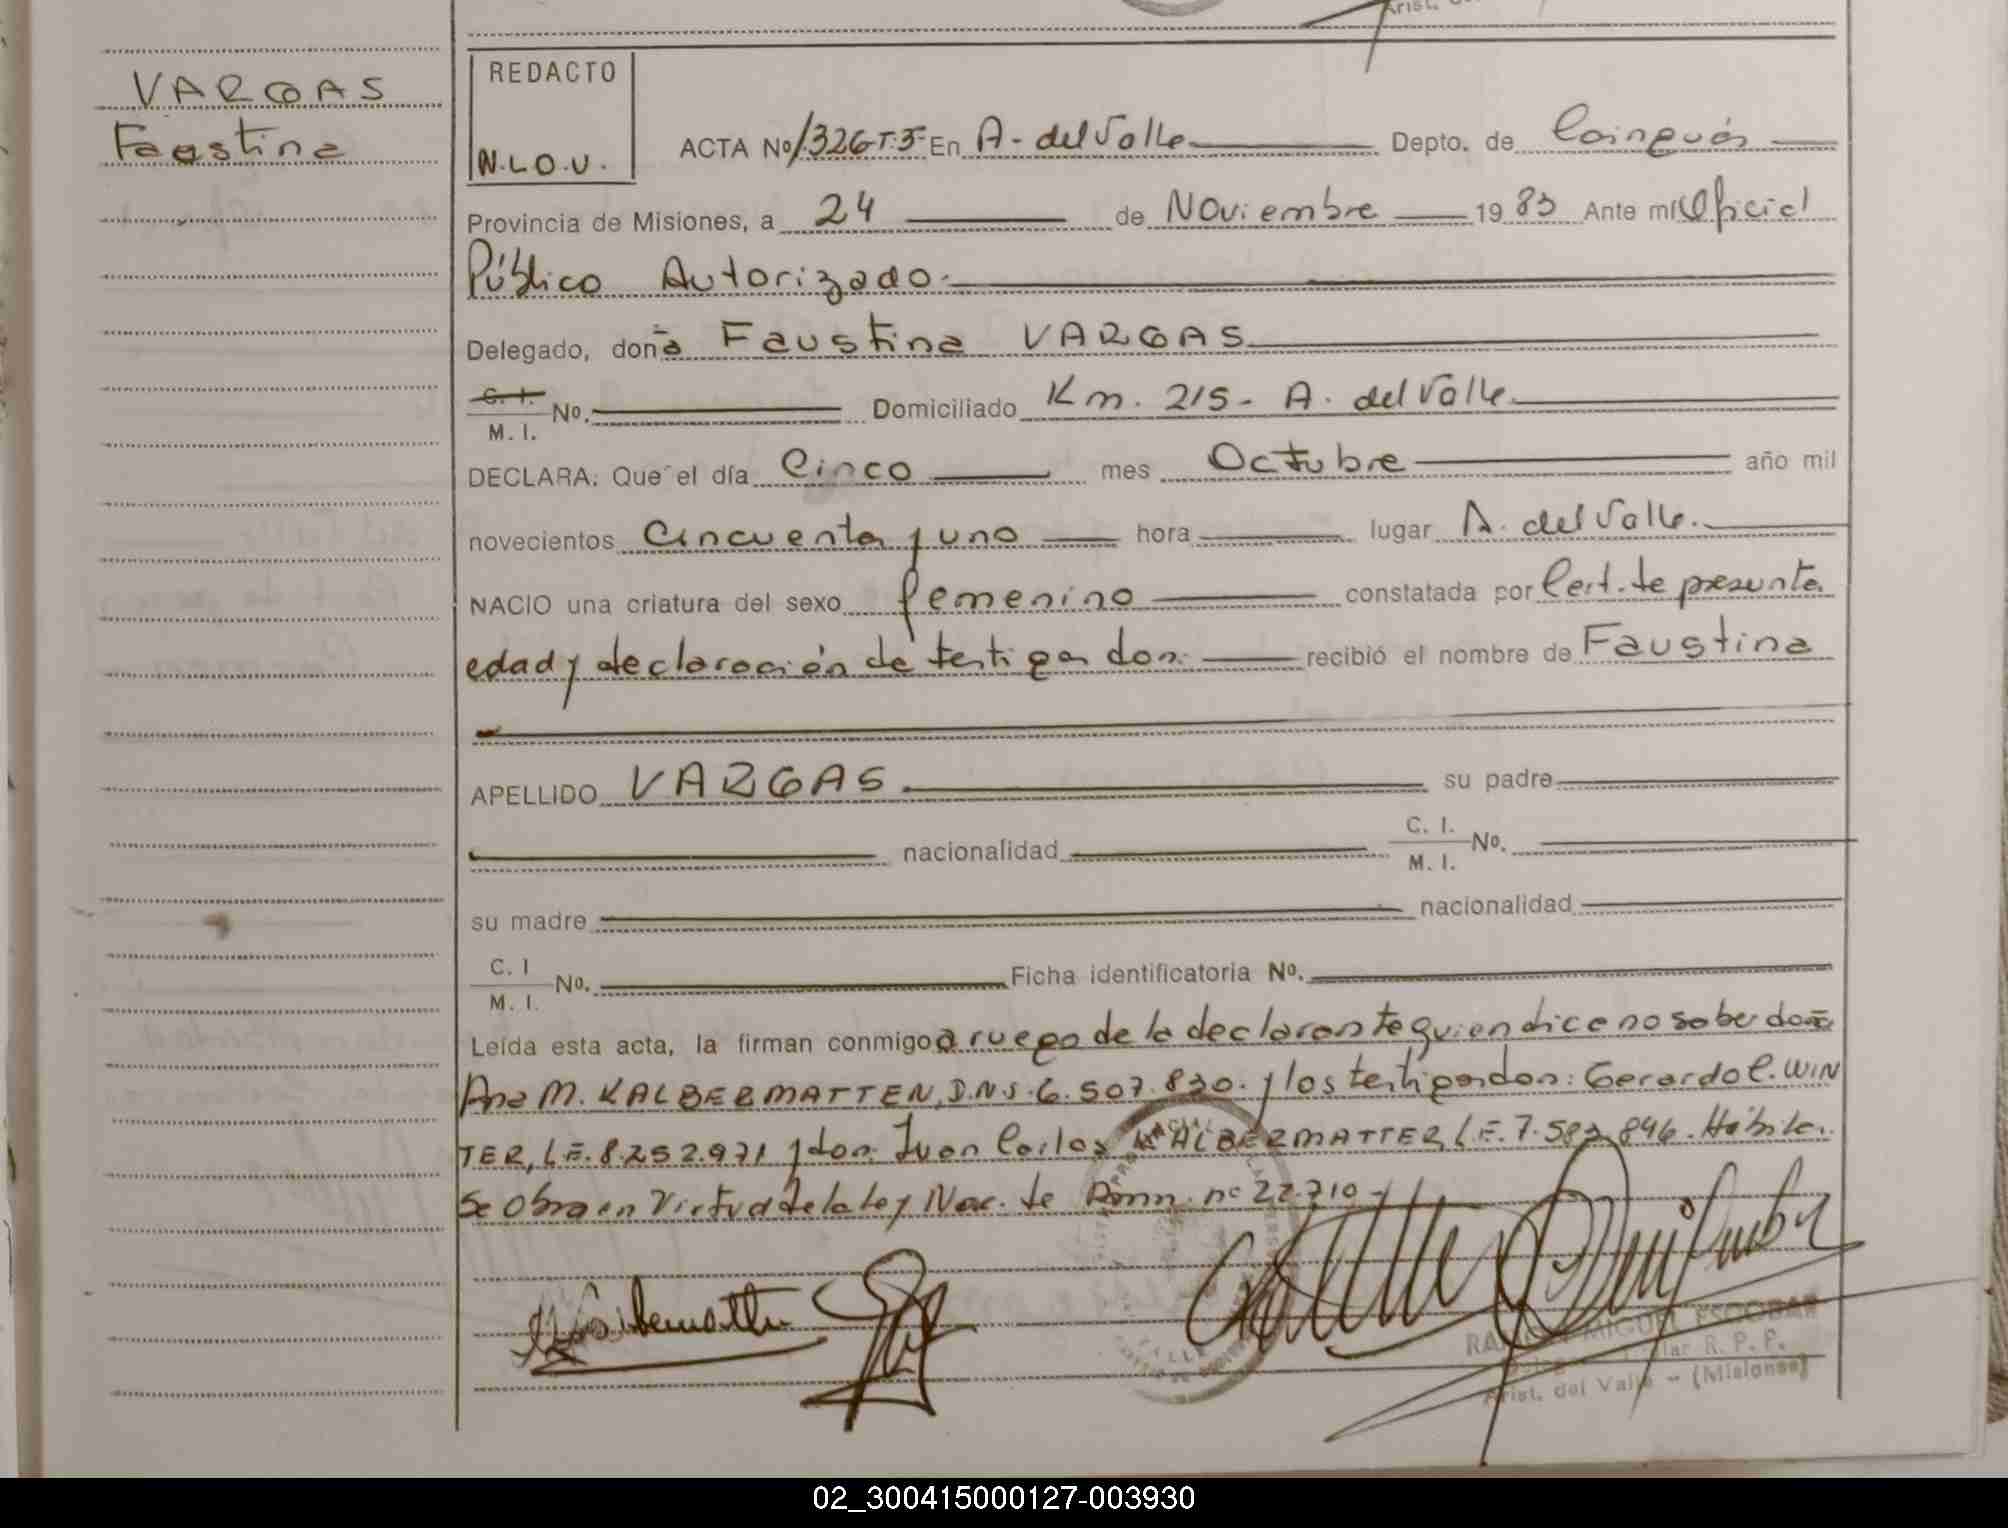 Arist.
VARGAS
Faustina
REDACTO
N.L.O.U.
ACTA Nº 1326 T.5- En A. del Valle Depto. de Cainguás
Provincia de Misiones, a 24 de Noviembre 1983 Ante mí Oficial
Público Autorizado.
Delegado, doña Faustina VARGAS
C. I. / M. I. No. Domiciliado Km. 215- A. del Valle
DECLARA: Que el día Cinco mes Octubre año mil
novecientos Cincuenta y uno hora lugar A. del Valle.
NACIO una criatura del sexo femenino constatada por Cert. de presunta
edad y declaración de testigos don: recibió el nombre de Faustina
APELLIDO VARGAS su padre
nacionalidad C. I. / M. I. No.
su madre nacionalidad
C. I / M. I. No. Ficha identificatoria No.
Leída esta acta, la firman conmigo a ruego de la declarante quien dice no saber doña
Ana M. KALBERMATTEN, D.N.I. 6.507.830. y los testigos don: Gerardo C. WIN
TER, L.E. 8.252.971 y don: Juan Carlos KALBERMATTER, L.E. 7.582.846. Hábiles.
Se Obra en Virtud de la Ley Nac. de Amn. nº 22.710-
MIGUEL ESCOBAR
R. P. P.
Arist. del Valle - (Misiones)
02_300415000127-003930